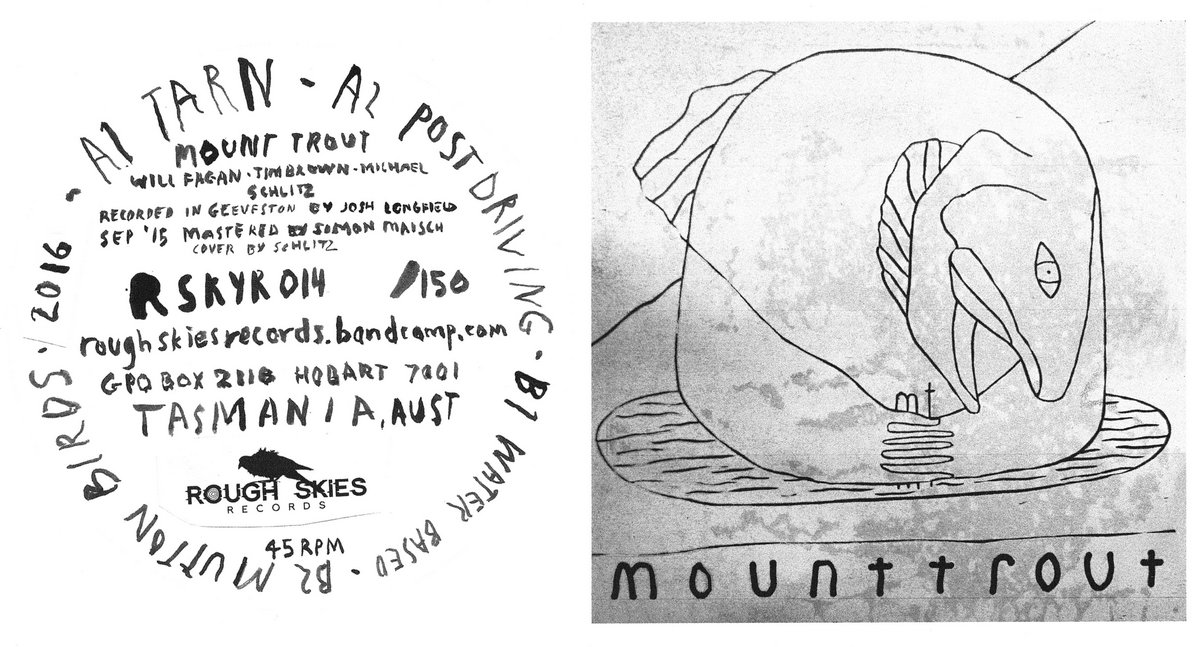 A1 TARN - A2 POST DRIVING - B1 WATER BASED - B2 MUTTON BIRDS · 2016 ·
MOUNT TROUT
WILL FAGAN · TIM BROWN · MICHAEL
SCHLITZ
RECORDED IN GEEVESTON BY JOSH LONGFIELD
SEP '15 MASTERED BY SIMON MAISCH
COVER BY SCHLITZ
RSKYR014 /150
roughskiesrecords.bandcamp.com
GPO BOX 2118 HOBART 7001
TASMANIA, AUST
ROUGH SKiES
RECORDS
45 RPM
mt
mount trout